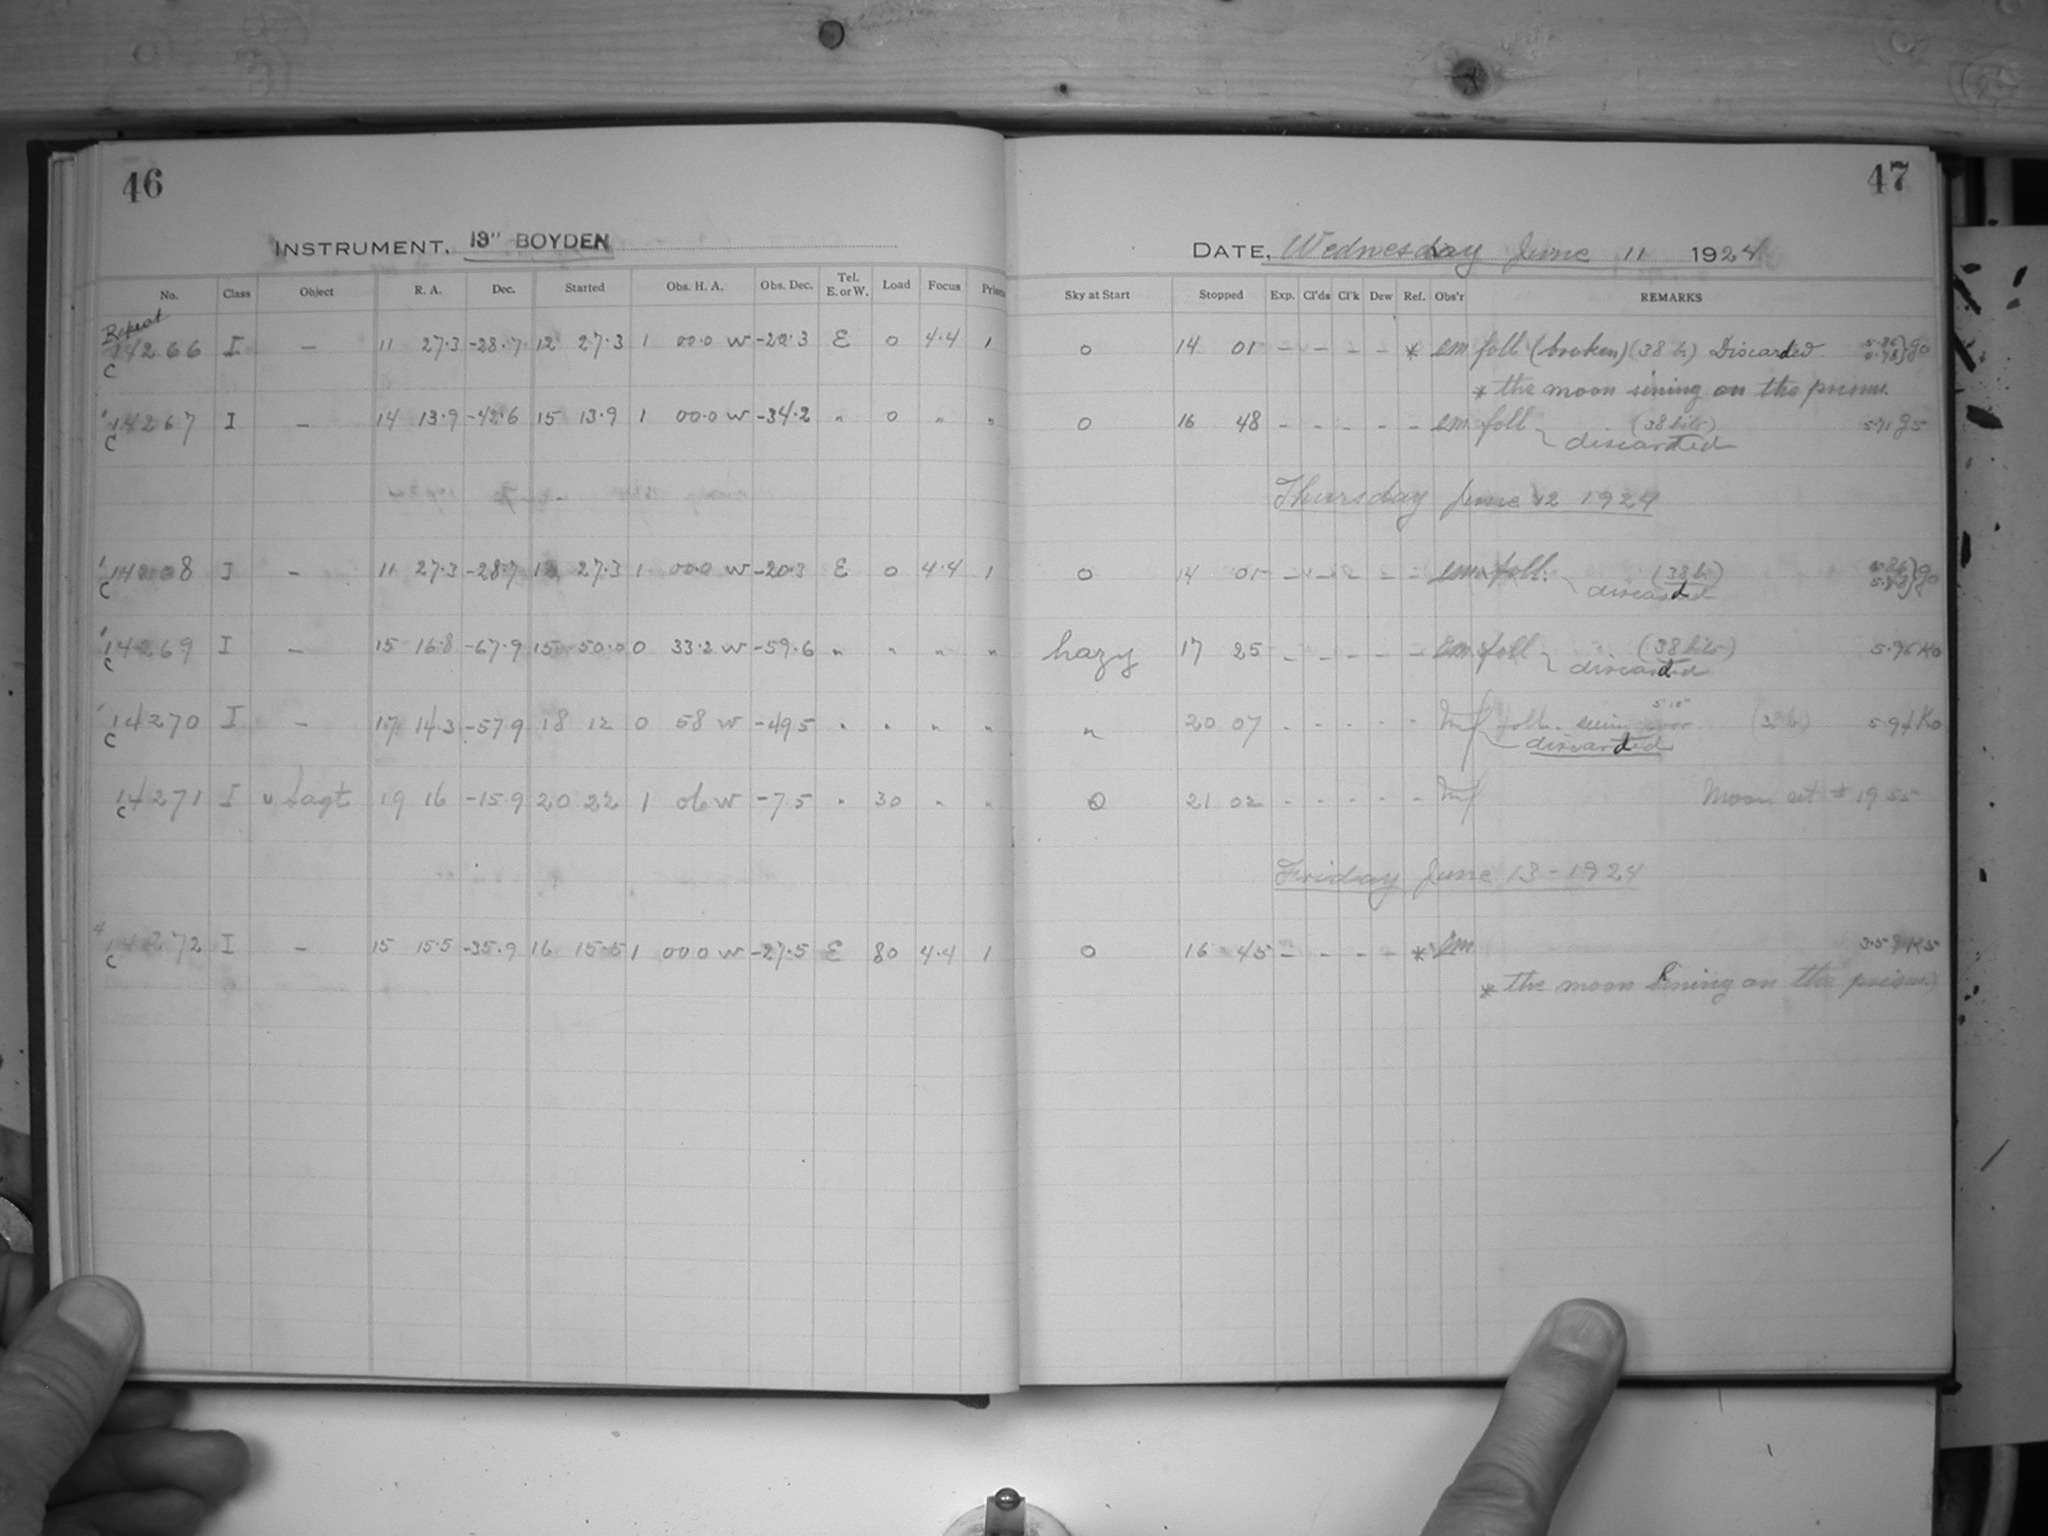 46
INSTRUMENT. 13" BOYDEN
No. Class Object R. A. Dec. Started Obs. H. A. Obs. Dec. Tel. E. or W. Load Focus Prisms
Repeat
14266 I — 11 27.3 -28.7 12 27.3 1 00.0 W -20.3 E 0 4.4 1
C
14267 I — 14 13.9 -42.6 15 13.9 1 00.0 W -34.2 " 0 " "
C
14268 I — 11 27.3 -28.7 12 27.3 1 00.0 W -20.3 E 0 4.4 1
C
14269 I — 15 16.8 -67.9 15 50.0 0 33.2 W -59.6 " " " "
C
14270 I — 17 14.3 -57.9 18 12 0 58 W -49.5 " " " "
C
14271 I υ Sagt 19 16 -15.9 20 22 1 06 W -7.5 " 30 " "
C
14272 I — 15 15.5 -35.9 16 15.5 1 00.0 W -27.5 E 80 4.4 1
C
47
DATE. Wednesday June 11 1924
Sky at Start Stopped Exp. Cl'ds Cl'k Dew Ref. Obs'r REMARKS
0 14 01 - - - - * em foll (broken) (38 b.) Discarded 5.26 5.78} g0
* the moon sining on the prisms.
0 16 48 - - - - - em. foll (38 bits) 5.71 g5
discarded
Thursday June 12 1924
0 14 01 - - - - - em foll. (38 b.) g0
discarded
hazy 17 25 - - - - - em foll (38 bits) 5.96 K0
discarded
" 20 07 - - - - - foll. seeing poor 5.94 K0
discarded
0 21 02 - - - - - Moon set ± 19 55
Friday June 13 - 1924
0 16 45 - - - - * em 3.59 K5
* the moon sining on the prism.